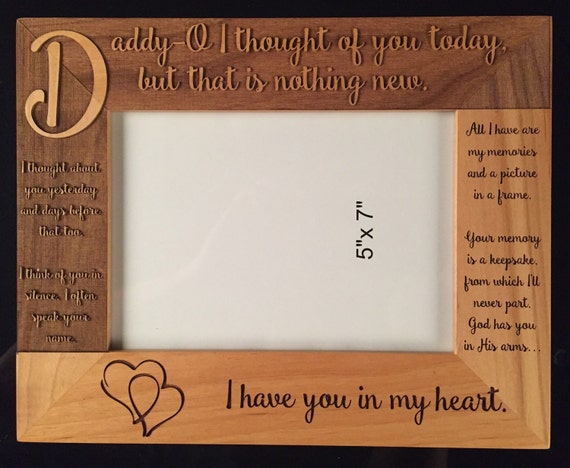 Daddy-O I thought of you today,
but that is nothing new.
I thought about
you yesterday
and days before
that too.
I think of you in
silence, I often
speak your
name.
All I have are
my memories
and a picture
in a frame.
Your memory
is a keepsake,
from which I'll
never part.
God has you
in His arms...
I have you in my heart.
5"x 7"